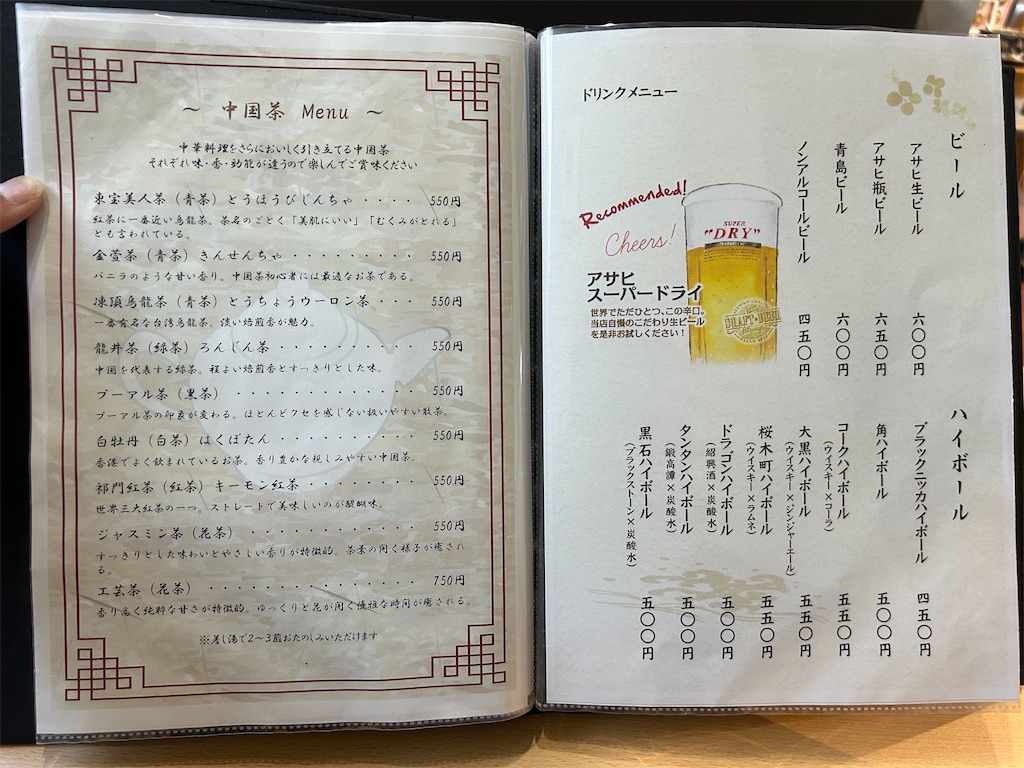 ～ 中国茶 Menu ～
中華料理をさらにおいしく引き立てる中国茶
それぞれ味・香・効能が違うので楽しんでご賞味ください
東宝美人茶（青茶）とうほうびじんちゃ ・・・・ 550円
紅茶に一番近い烏龍茶。茶名のごとく「美肌にいい」「むくみがとれる」
とも言われている。
金萱茶（青茶）きんせんちゃ ・・・・・・・・・ 550円
バニラのような甘い香り。中国茶初心者には最適なお茶である。
凍頂烏龍茶（青茶）とうちょうウーロン茶 ・・・ 550円
一番有名な台湾烏龍茶。淡い焙煎香が魅力。
龍井茶（緑茶）ろんじん茶 ・・・・・・・・・・ 550円
中国を代表する緑茶。程よい焙煎香とすっきりとした味。
プーアル茶（黒茶） ・・・・・・・・・・・・・ 550円
プーアル茶の印象が変わる。ほとんどクセを感じない扱いやすい散茶。
白牡丹（白茶）はくぼたん ・・・・・・・・・・ 550円
香港でよく飲まれているお茶。香り豊かな親しみやすい中国茶。
祁門紅茶（紅茶）キーモン紅茶 ・・・・・・・・ 550円
世界三大紅茶の一つ。ストレートで美味しいのが醍醐味。
ジャスミン茶（花茶） ・・・・・・・・・・・・ 550円
すっきりとした味わいとやさしい香りが特徴的。茶葉の開く様子が癒され
る。
工芸茶（花茶） ・・・・・・・・・・・・・・・ 750円
香り高く純粋な甘さが特徴的。ゆっくりと花が開く優雅な時間が癒される。
※差し湯で2～3煎おたのしみいただけます
ドリンクメニュー
ビール
アサヒ生ビール 六〇〇円
アサヒ瓶ビール 六五〇円
青島ビール 六〇〇円
ノンアルコールビール 四五〇円
Recommended!
Cheers!
アサヒ
スーパードライ
世界でただひとつ、この辛口。
当店自慢のこだわり生ビール
を是非お試しください！
SUPER
"DRY"
DRAFT BEER
ハイボール
ブラックニッカハイボール 四五〇円
角ハイボール 五〇〇円
コークハイボール 五五〇円
（ウイスキー×コーラ）
大黒ハイボール 五五〇円
（ウイスキー×ジンジャーエール）
桜木町ハイボール 五五〇円
（ウイスキー×ラムネ）
ドラゴンハイボール 五〇〇円
（紹興酒×炭酸水）
タンタンハイボール 五〇〇円
（鍛高譚×炭酸水）
黒石ハイボール 五〇〇円
（ブラックストーン×炭酸水）